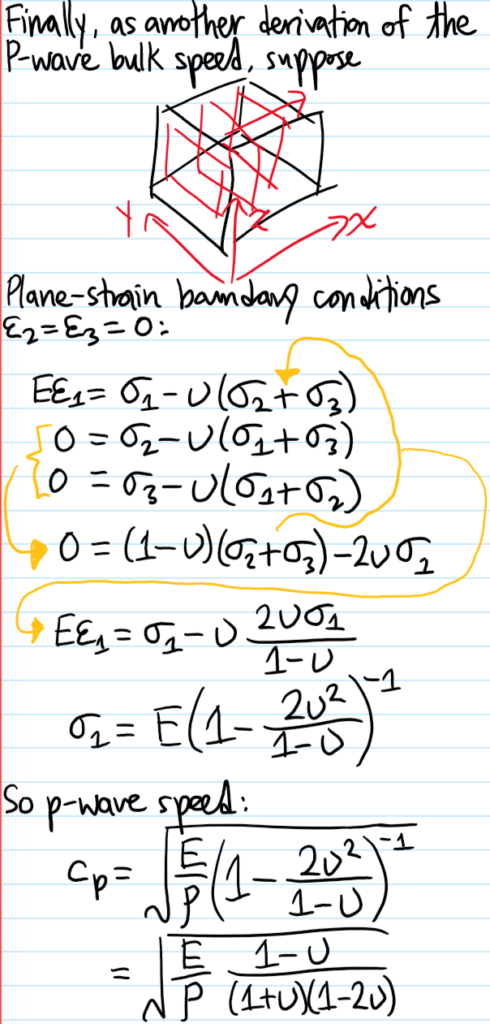 Finally, as another derivation of the
P-wave bulk speed, suppose
Y Z X
Plane-strain boundary conditions
ε₂=ε₃=0:
Eε₁= σ₁-υ(σ₂+σ₃)
0 = σ₂-υ(σ₁+σ₃)
0 = σ₃-υ(σ₁+σ₂)
0 = (1-υ)(σ₂+σ₃)-2υσ₁
Eε₁= σ₁-υ 2υσ₁/(1-υ)
σ₁= E(1-2υ²/(1-υ))⁻¹
So p-wave speed:
Cp= √(E/ρ (1-2υ²/(1-υ))⁻¹)
= √(E/ρ (1-υ)/((1+υ)(1-2υ)))